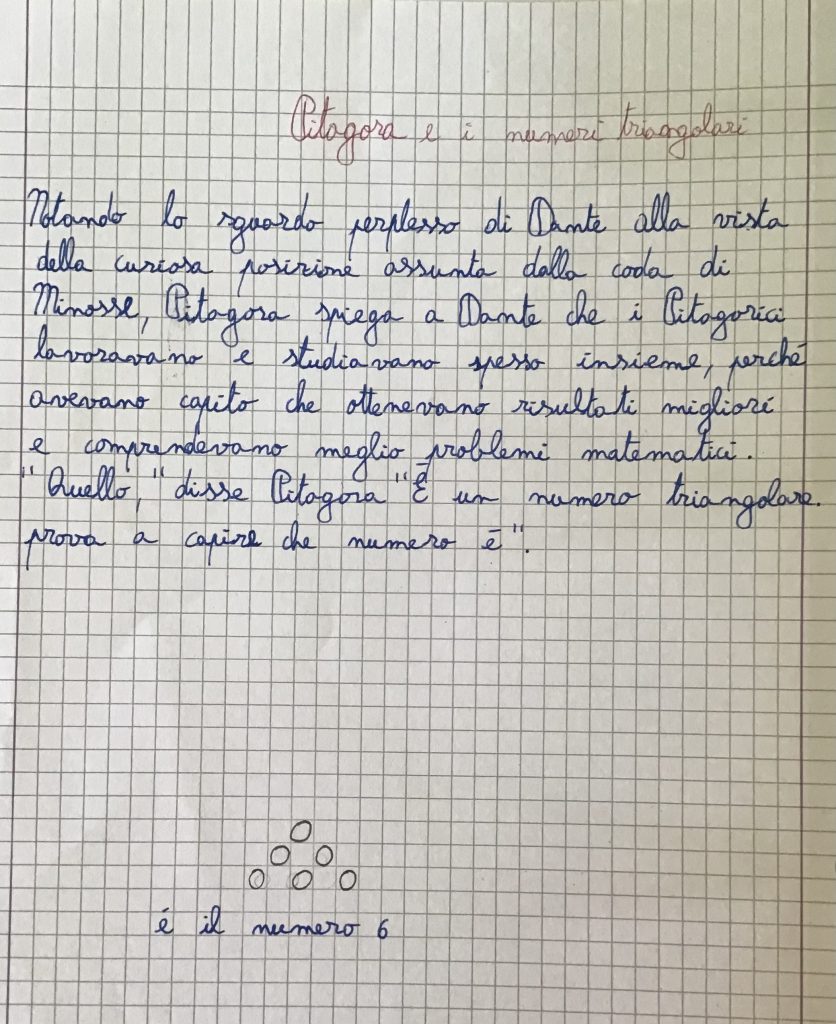 Pitagora e i numeri triangolari
Notando lo sguardo perplesso di Dante alla vista
della curiosa posizione assunta dalla coda di
Minosse, Pitagora spiega a Dante che i Pitagorici
lavoravano e studiavano spesso insieme, perché
avevano capito che ottenevano risultati migliori
e comprendevano meglio problemi matematici.
"Quello," disse Pitagora "È un numero triangolare.
prova a capire che numero è".
é il numero 6